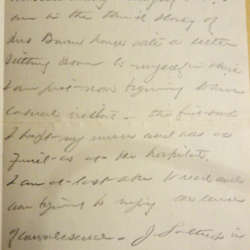 am in the third story of
Barn house with a little
sitting room to myself in which
I am just now beginning to have
casual visitors - the first week
I kept my nurse and was as
quiet as at the hospital.
I am at last able to read and
am beginning to enjoy the
of convalescence - J.